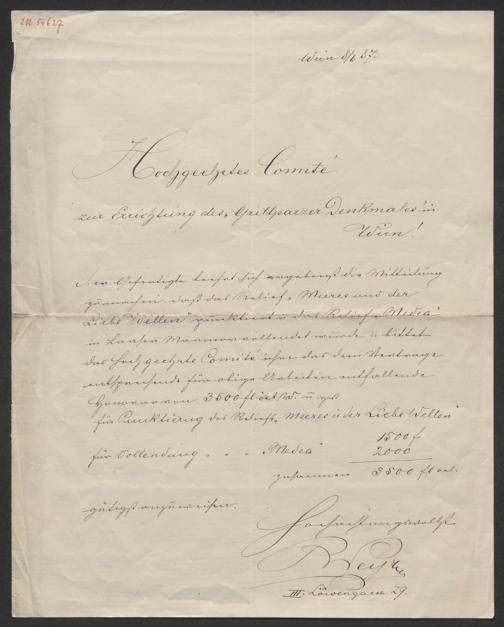 Wien 8/6 87.
Hochgeehrtes Comité
zur Errichtung des „Grillparzer Denkmales" in
Wien!
Der Gefertigte beehrt sich ergebenst die Mitteilung
zu machen, daß das Relief „Meeres und der
Liebe Wellen" punktiert u. das Relief „Medea"
in Laaser Marmor vollendet wurde u. bittet
das Hochgeehrte Comité ihm das dem Vertrage
entsprechende für obige Arbeiten entfallende
Honorar von 3500 fl öst. W. u. zwar
für Punktierung des Reliefs „Meeres u. der Liebe Wellen"
1500 f
für Vollendung " " " „Medea" 2000
zusammen 3500 fl öst.
gütigst anzuweisen.
Hochachtungsvollst
III. Löwengasse 29.